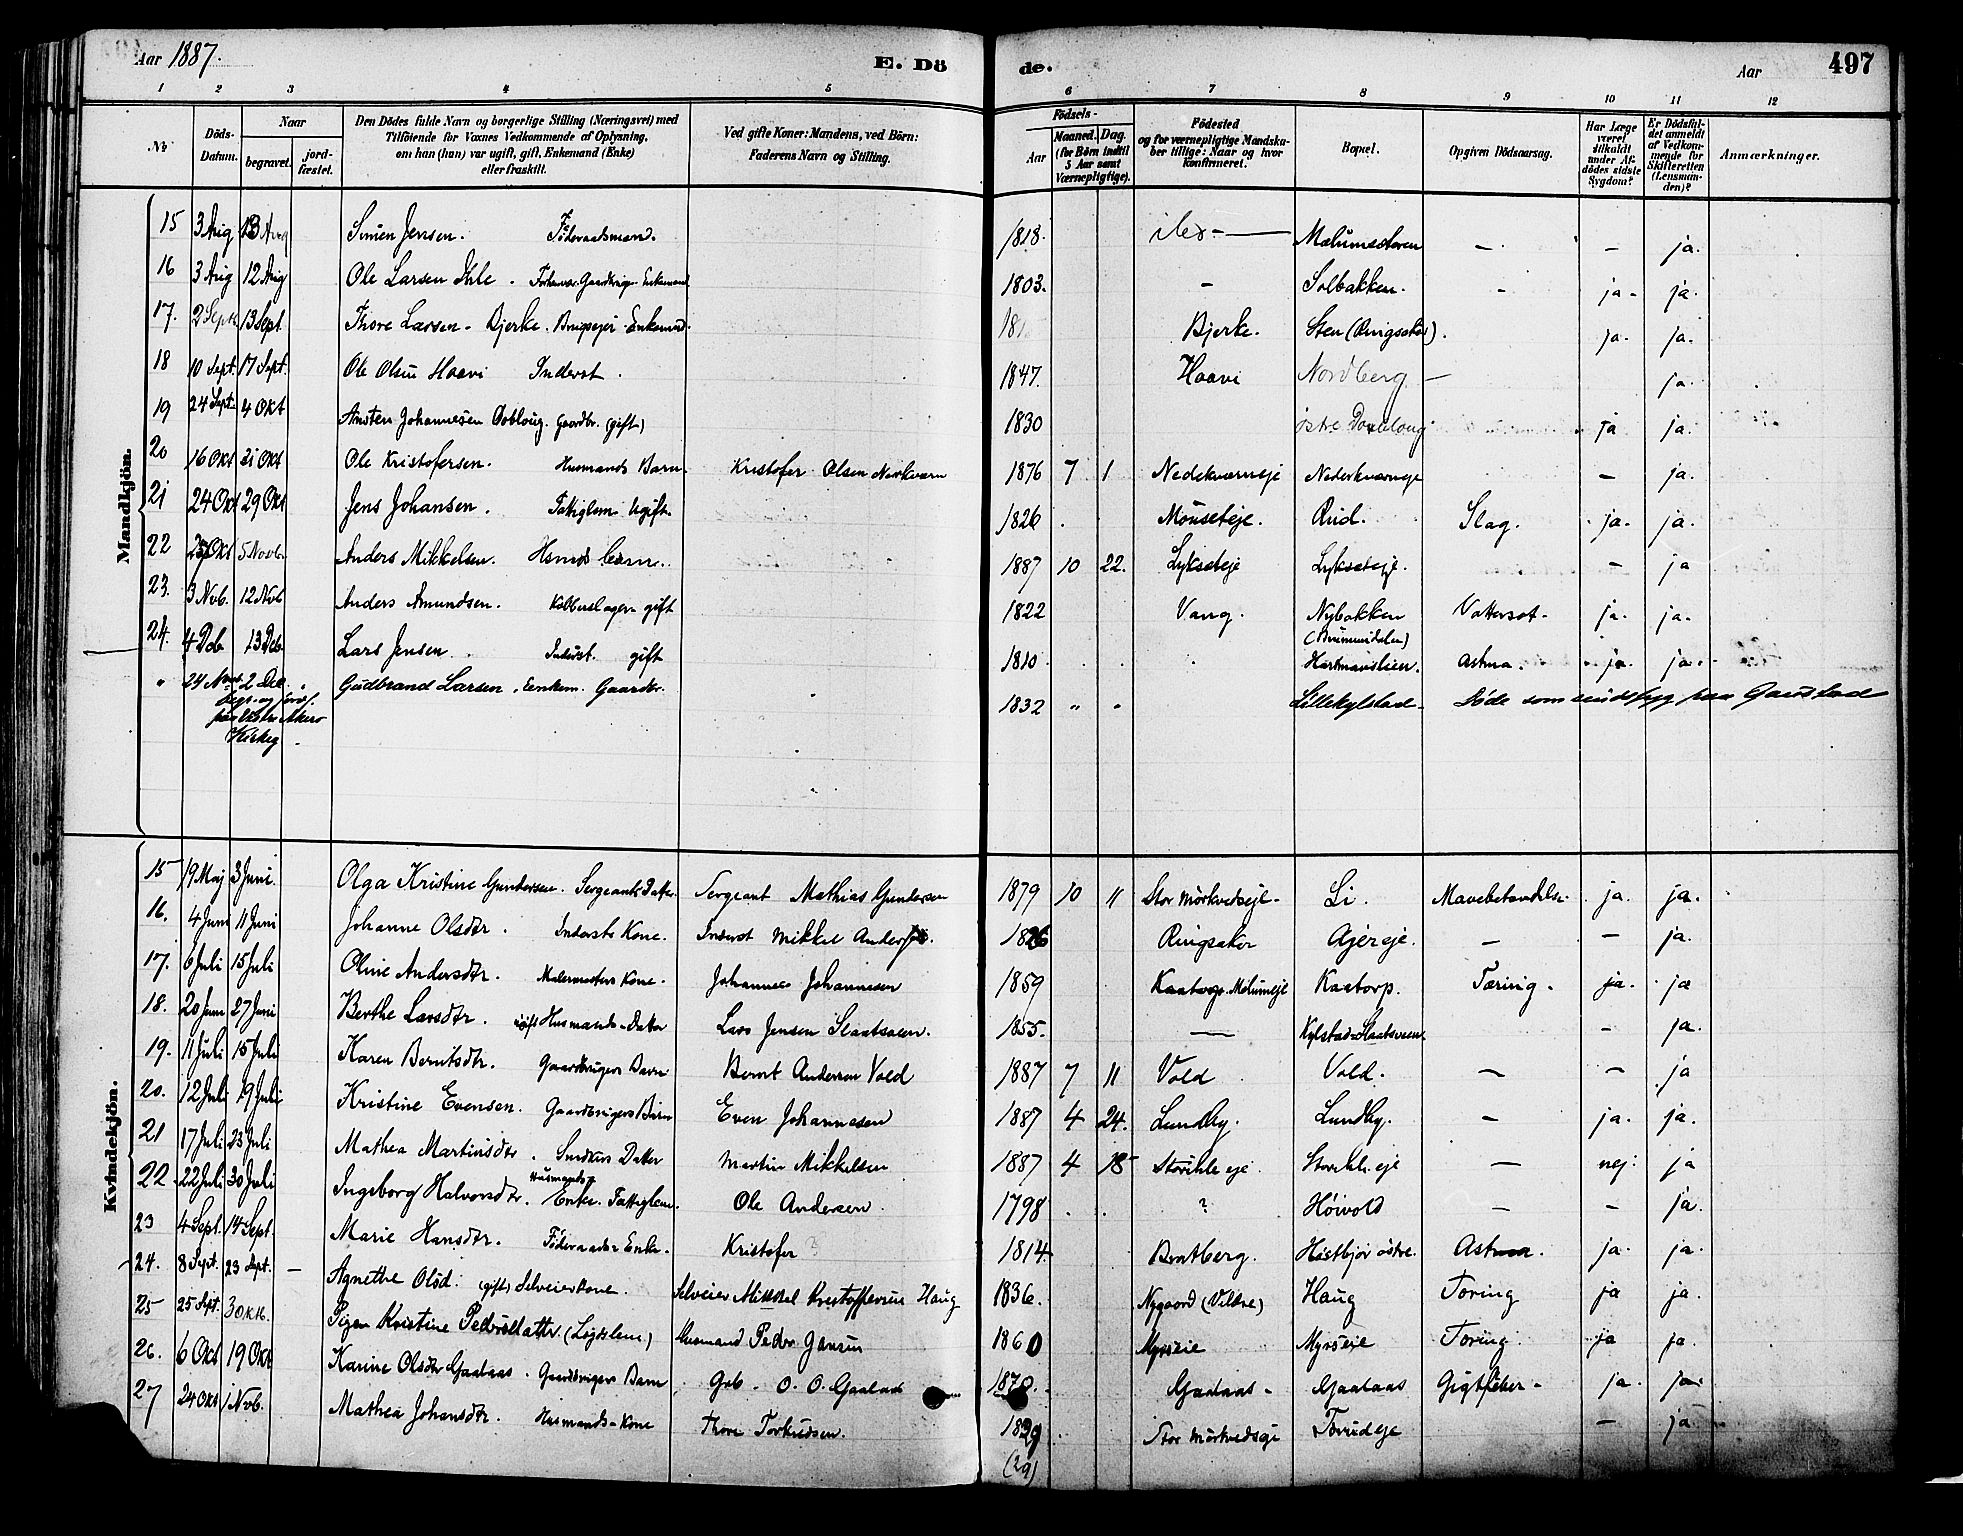 Aar 1887.
E. Döde.
Aar
497
1 2 3 4 5 6 7 8 9 10 11 12
No
Döds-Datum.
Naar
begravet.
jordfæstet.
Den Dödes fulde Navn og borgerlige Stilling (Næringsvei) med Tilföiende for Voxnes Vedkommende af Oplysning, om han (hun) var ugift, gift, Enkemand (Enke) eller fraskilt.
Ved gifte Koner: Mandens, ved Börn: Faderens Navn og Stilling.
Födsels-
Aar
Maaned. Dag.
(for Börn indtil 5 Aar samt Værnepligtige).
Födested og for værnepligtige Mandskaber tillige: Naar og hvor Konfirmeret.
Bopæl.
Opgiven Dödsaarsag.
Har Læge været tilkaldt under Afdödes sidste Sygdom?
Er Dödsfaldet anmeldt af Vedkommende for Skifteretten (Lensmanden)?
Anmærkninger.
Mandkjön.
15 3 Aug 13 Aug Simen Jensen. Föderaadsmand. 1818. Mælumsstuen - - ja.
16 3 Aug 12 Aug Ole Larsen Ihle. Forhenvær. Gaardbrug. Enkemand 1803. - Solbakken. - ja - ja.
17. 2 Sept 13 Sept Thore Larsen - Bjerke. Brugseier Enkemd. 181 Bjerke. Sten (Ringsaker). ja. ja.
18 10 Sept. 17 Sept. Ole Olsen Haavi Inderst. 1847. Haavi Nordberg - ja.
19 24 Sept. 4 Okt Amsten Johannesen Dobloug. Gaardbr. (gift) 1830 östre Dobloug ja ja.
20 16 Okt 21 Okt Ole Kristofersen. Husmands Barn. Kristofer Olsen Nerkvern 1876 7 1 Nedekværneje Nederkværneje - ja.
21 24 Okt 29 Okt Jens Johansen. Fattiglem Ugift. 1826 Mouseteje. Rud. Slag. ja. ja.
22 25 Okt 5 Novb. Anders Mikkelsen. Husmds barn. 1887 10 22. Lykseteje Lykseteje. - ja
23. 3 Nvb. 12 Nvb Anders Amundsen. Kobberslager gift 1822 Vang. Nybakken (Brumundalen) Vattersot. ja. ja.
24. 4 Deb 13 Deb Lars Jensen. Inderst. gift 1810 Hartmansheien. Astma. ja. ja.
" 24 Novt 2 Dec Gudbrand Larsen. Eenkem. Gaardbr. 1832 " " Lillekylstad. Døde som sindssyg paa Gaustad
begr. og jordf. paa Vestre Akers Kirkeg.
Kvindekjön.
15 19 Maj 3 Juni. Olga Kristine Gundersen. Sergeants Datter Sergeant Mathias Gundersen 1879 10 11 Stor Mörkvedseje - Li. Mavebetændelse ja. ja.
16. 4 Juni 11 Juni Johanne Olsdtr. Inderste Kone. Inderst Mikkel Andersen. 1826 Ringsaker Ajereje. - - ja.
17. 6 Juli 15 Juli Oline Andersdtr. Malermesters Kone. Johannes Johannesen 1859 Kaatorp. Mælumeje Kaatorp. Tæring. ja. ja
18. 20 Juni 27 Juni Berthe Larsdtr. ugift Husmands-Datter Lars Jensen Slaatsveen. 1855. - Kylstad-Slaatsveen - ja.
19. 11 Juli 15 Juli Karen Berntsdtr. Gaardbrugers Barn Bernt Andersen Vold 1887 7 11 Vold Vold. - - ja
20. 12 Juli 19 Juli Kristine Evensen. Gaardbrugers Barn Even Johannesen 1887 4 24. Lundby. Lundby. - ja. ja.
21 17 Juli 23 Juli Mathea Martinsdtr. Smedens Datter Martin Mikkelsen 1887 4 18 Storihle eje. Storihle eje - nej. ja
22. 22 Juli 30 Juli Ingeborg Halvorsdtr. Husmands Enke. Fattiglem. Ole Andersen. 1798 ? Høivold - - ja.
23 4 Sept. 14 Sept. Marie Hansdtr. Föderaads Enke. Kristofer ? 1814 Bratberg. Hestbjør østre. Astma. ja. ja.
24. 8 Sept. 23 Sept. - Agnethe Olsd. (gift) Selveierkone. Selveier Mikkel Kristoffersen Haug 1836. Nygaard (Veldre) Haug Tæring ja ja.
25 25 Sept. 3 Oktb. Pigen Kristine Pedersdatter (Legdslem) Husmand Peder Jansen 1860 Myrseie Myrseje Tæring. ja ja.
26. 6 Okt 19 Okt Karine Olsdtr Gaalaas. Gaardbrugers Barn Gbr. O. O. Gaalaas 1870. Gaalaas - Gaalaas Gigtfeber - ja. ja.
27 24 Okt 1 Nvb. Mathea Johansdtr. Husmands-Kone Thore Torkildsen. 1829 Stor Mörkvedseje Torudeje - ja
(29)